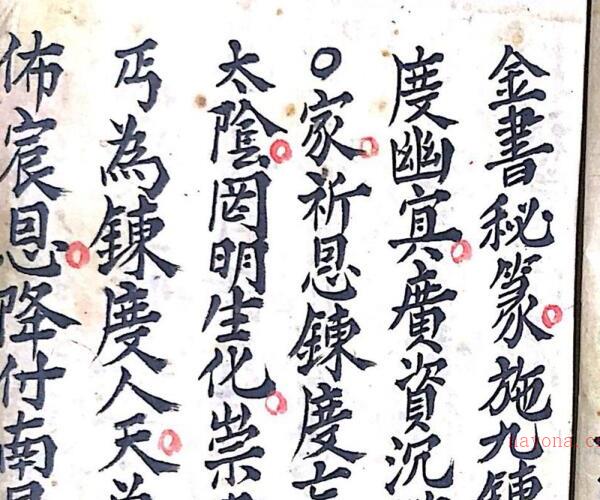 金書秘篆施九鍊
度幽冥廣資沉
〇家祈恩鍊度亡
太陰罔明生化崇
丐為鍊度人天
佈宸恩降付南